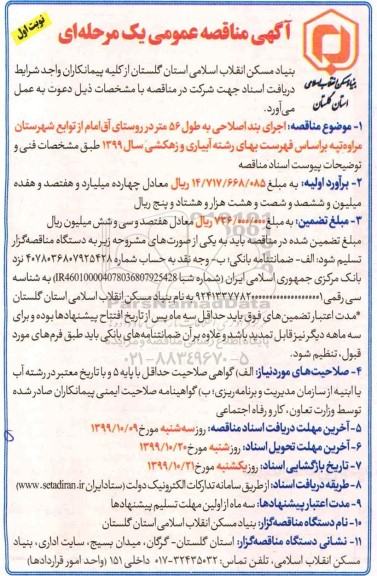 نوبت اول
آگهی مناقصه عمومی یک مرحله‌ای
بنیاد مسکن انقلاب اسلامی
استان گلستان
بنیاد مسکن انقلاب اسلامی استان گلستان از کلیه پیمانکاران واجد شرایط
دریافت اسناد جهت شرکت در مناقصه با مشخصات ذیل دعوت به عمل
می‌آورد.
۱- موضوع مناقصه: اجرای بند اصلاحی به طول ۵۶ متر در روستای آق‌امام از توابع شهرستان
مراوه‌تپه براساس فهرست بهای رشته آبیاری و زهکشی سال ۱۳۹۹ طبق مشخصات فنی و
توضیحات پیوست اسناد مناقصه
۲- برآورد اولیه: به مبلغ ۱۴/۷۱۷/۶۶۸/۰۸۵ ریال معادل چهارده میلیارد و هفتصد و هفده
میلیون و ششصد و شصت و هشت هزار و هشتاد و پنج ریال
۳- مبلغ تضمین: به مبلغ ۷۳۶/۰۰۰/۰۰۰ ریال معادل هفتصد و سی و شش میلیون ریال
مبلغ تضمین شده در مناقصه باید به یکی از صورت‌های مشروحه زیر به دستگاه مناقصه‌گزار
تسلیم شود: الف- ضمانتنامه بانکی؛ ب- وجه نقد به حساب شماره ۴۰۷۸۰۳۶۸۰۷۹۲۵۴۲۸ نزد
بانک مرکزی جمهوری اسلامی ایران (شماره شبا IR460100004078036807925428) به شناسه
سی رقمی به نام بنیاد مسکن انقلاب اسلامی استان گلستان
*مدت اعتبار تضمین‌های فوق باید حداقل سه ماه پس از تاریخ افتتاح پیشنهادها بوده و برای
سه ماهه دیگر نیز قابل تمدید باشد و علاوه بر آن ضمانتنامه‌های بانکی باید طبق فرم‌های مورد
قبول، تنظیم شود.
۴- صلاحیت‌های موردنیاز: الف) گواهی صلاحیت حداقل با پایه ۵ و با تاریخ معتبر در رشته آب
یا ابنیه از سازمان مدیریت و برنامه‌ریزی؛ ب) گواهینامه صلاحیت ایمنی پیمانکاران صادر شده
توسط وزارت تعاون، کار و رفاه اجتماعی
۵- آخرین مهلت دریافت اسناد مناقصه: روز سه‌شنبه مورخ ۱۳۹۹/۱۰/۰۹
۶- آخرین مهلت تحویل اسناد: روز شنبه مورخ ۱۳۹۹/۱۰/۲۰
۷- تاریخ بازگشایی اسناد: روز یکشنبه مورخ ۱۳۹۹/۱۰/۲۱
۸- طریقه دریافت اسناد: از طریق سامانه تدارکات الکترونیک دولت (ستاد ایران www.setadiran.ir)
۹- مدت اعتبار پیشنهادها: سه ماه از اولین مهلت تسلیم پیشنهادها
۱۰- نام دستگاه مناقصه‌گزار: بنیاد مسکن انقلاب اسلامی استان گلستان
۱۱- نشانی دستگاه مناقصه‌گزار: استان گلستان- گرگان، میدان بسیج، سایت اداری، بنیاد
مسکن انقلاب اسلامی، تلفن تماس: ۳۲۴۳۵۰۳۲-۰۱۷ داخلی ۱۵۱ (واحد امور قراردادها)
ParsNamadData
۰۲۱-۸۸۳۴۹۶۷۰-۵